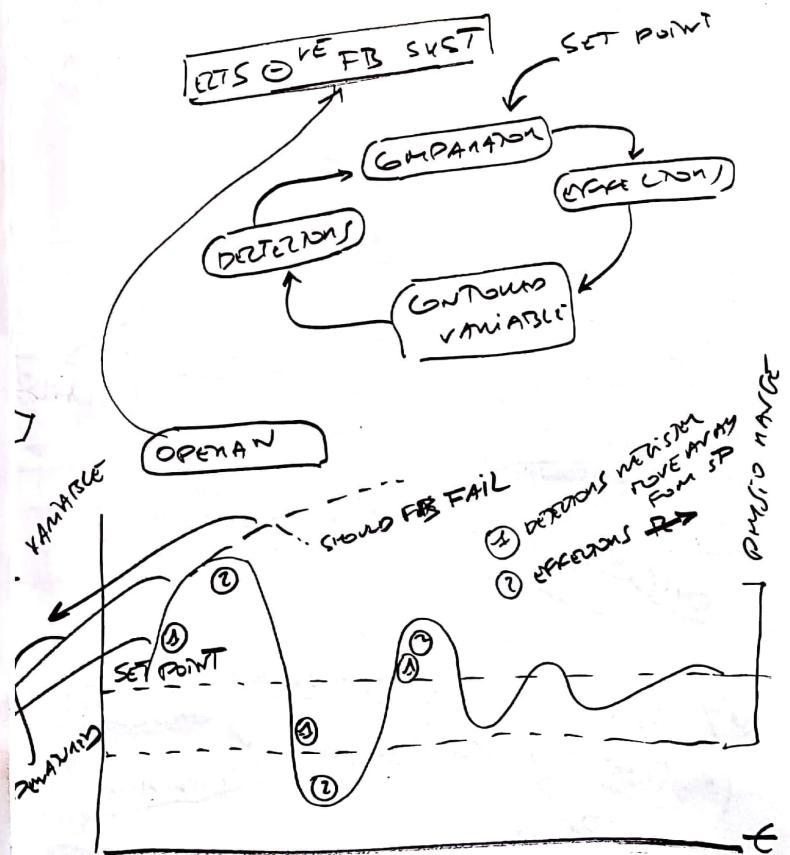 ⊖VE FB SYST
SET POINT
COMPARATOR
EFFECTORS
DETECTORS
CONTROLLED
VARIABLE
VARIABLE
SHOULD FB FAIL
① DETECTORS REGISTER
MOVE AWAY
FROM SP
② EFFECTORS
PHYSIO RANGE
②
①
SET POINT
②
①
①
②
t